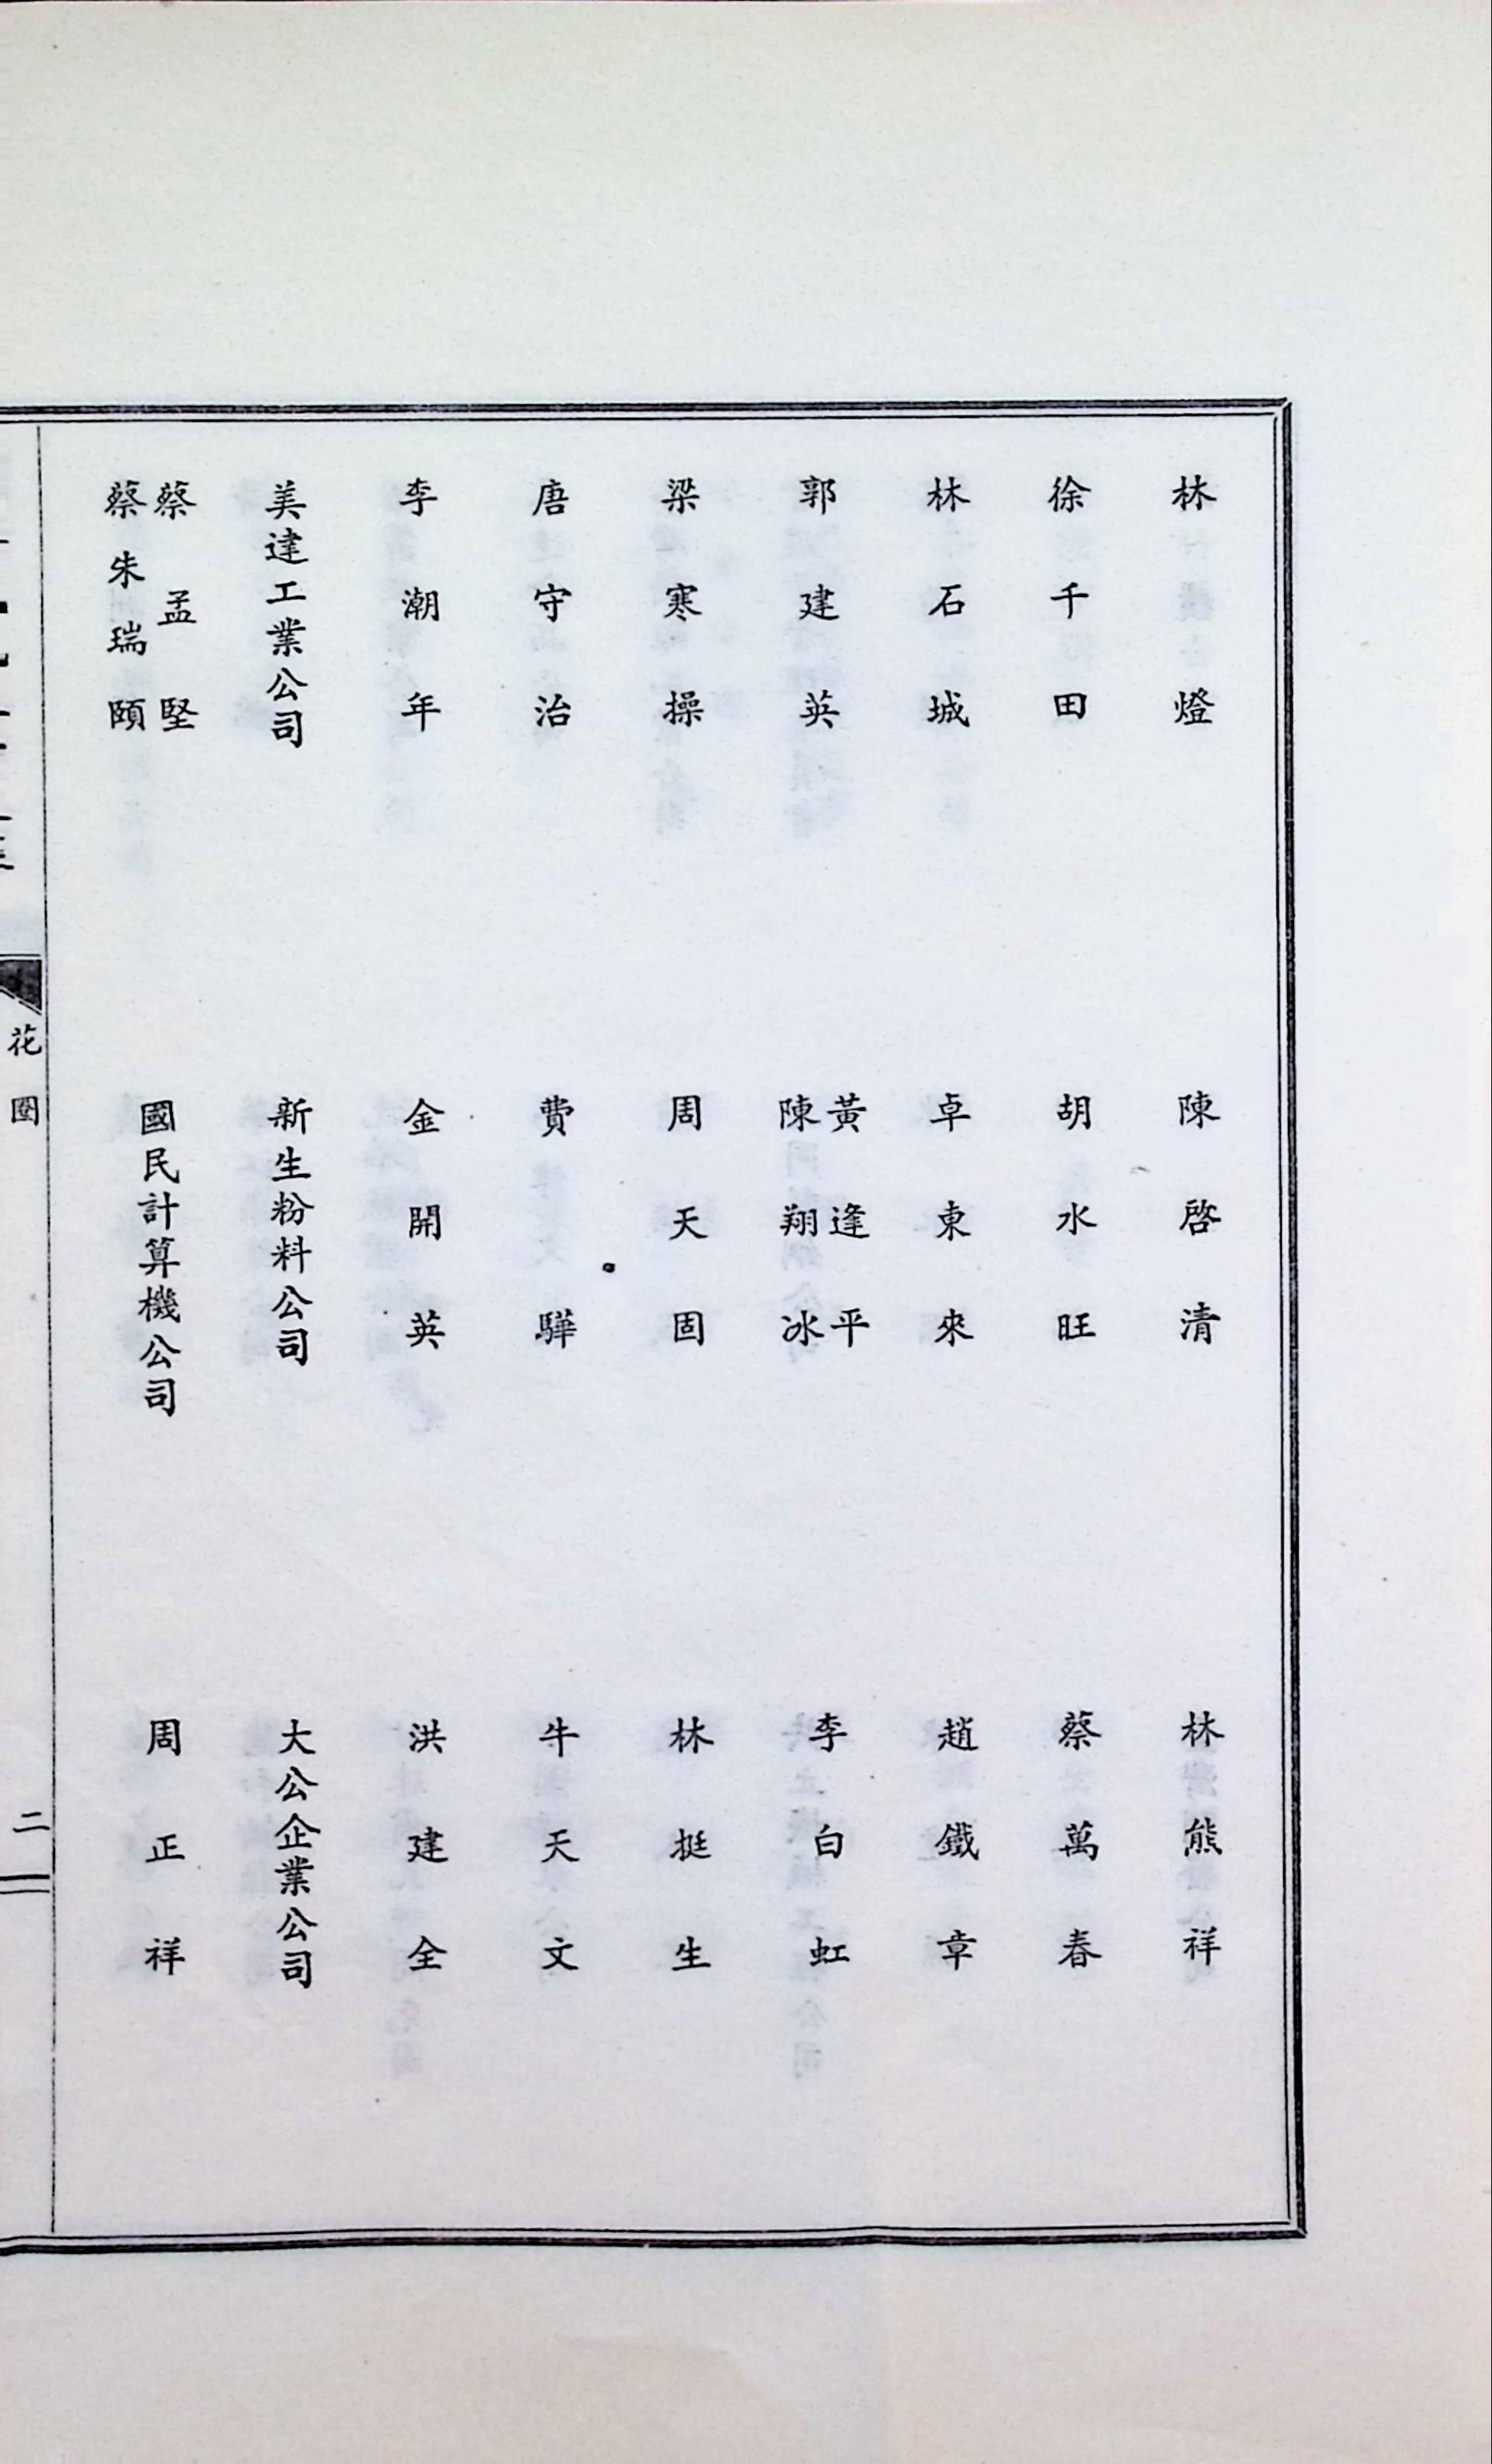 林燈
陳啓清
林熊祥
徐千田
胡水旺
蔡萬春
林石城
卓東來
趙鐵章
郭建英
黃逢平
陳翔冰
李白虹
梁寒操
周天固
林挺生
唐守治
費驊
牛天文
李潮年
金開英
洪建全
美建工業公司
新生粉料公司
大公企業公司
蔡孟堅
蔡朱瑞頤
國民計算機公司
周正祥
花圈
二